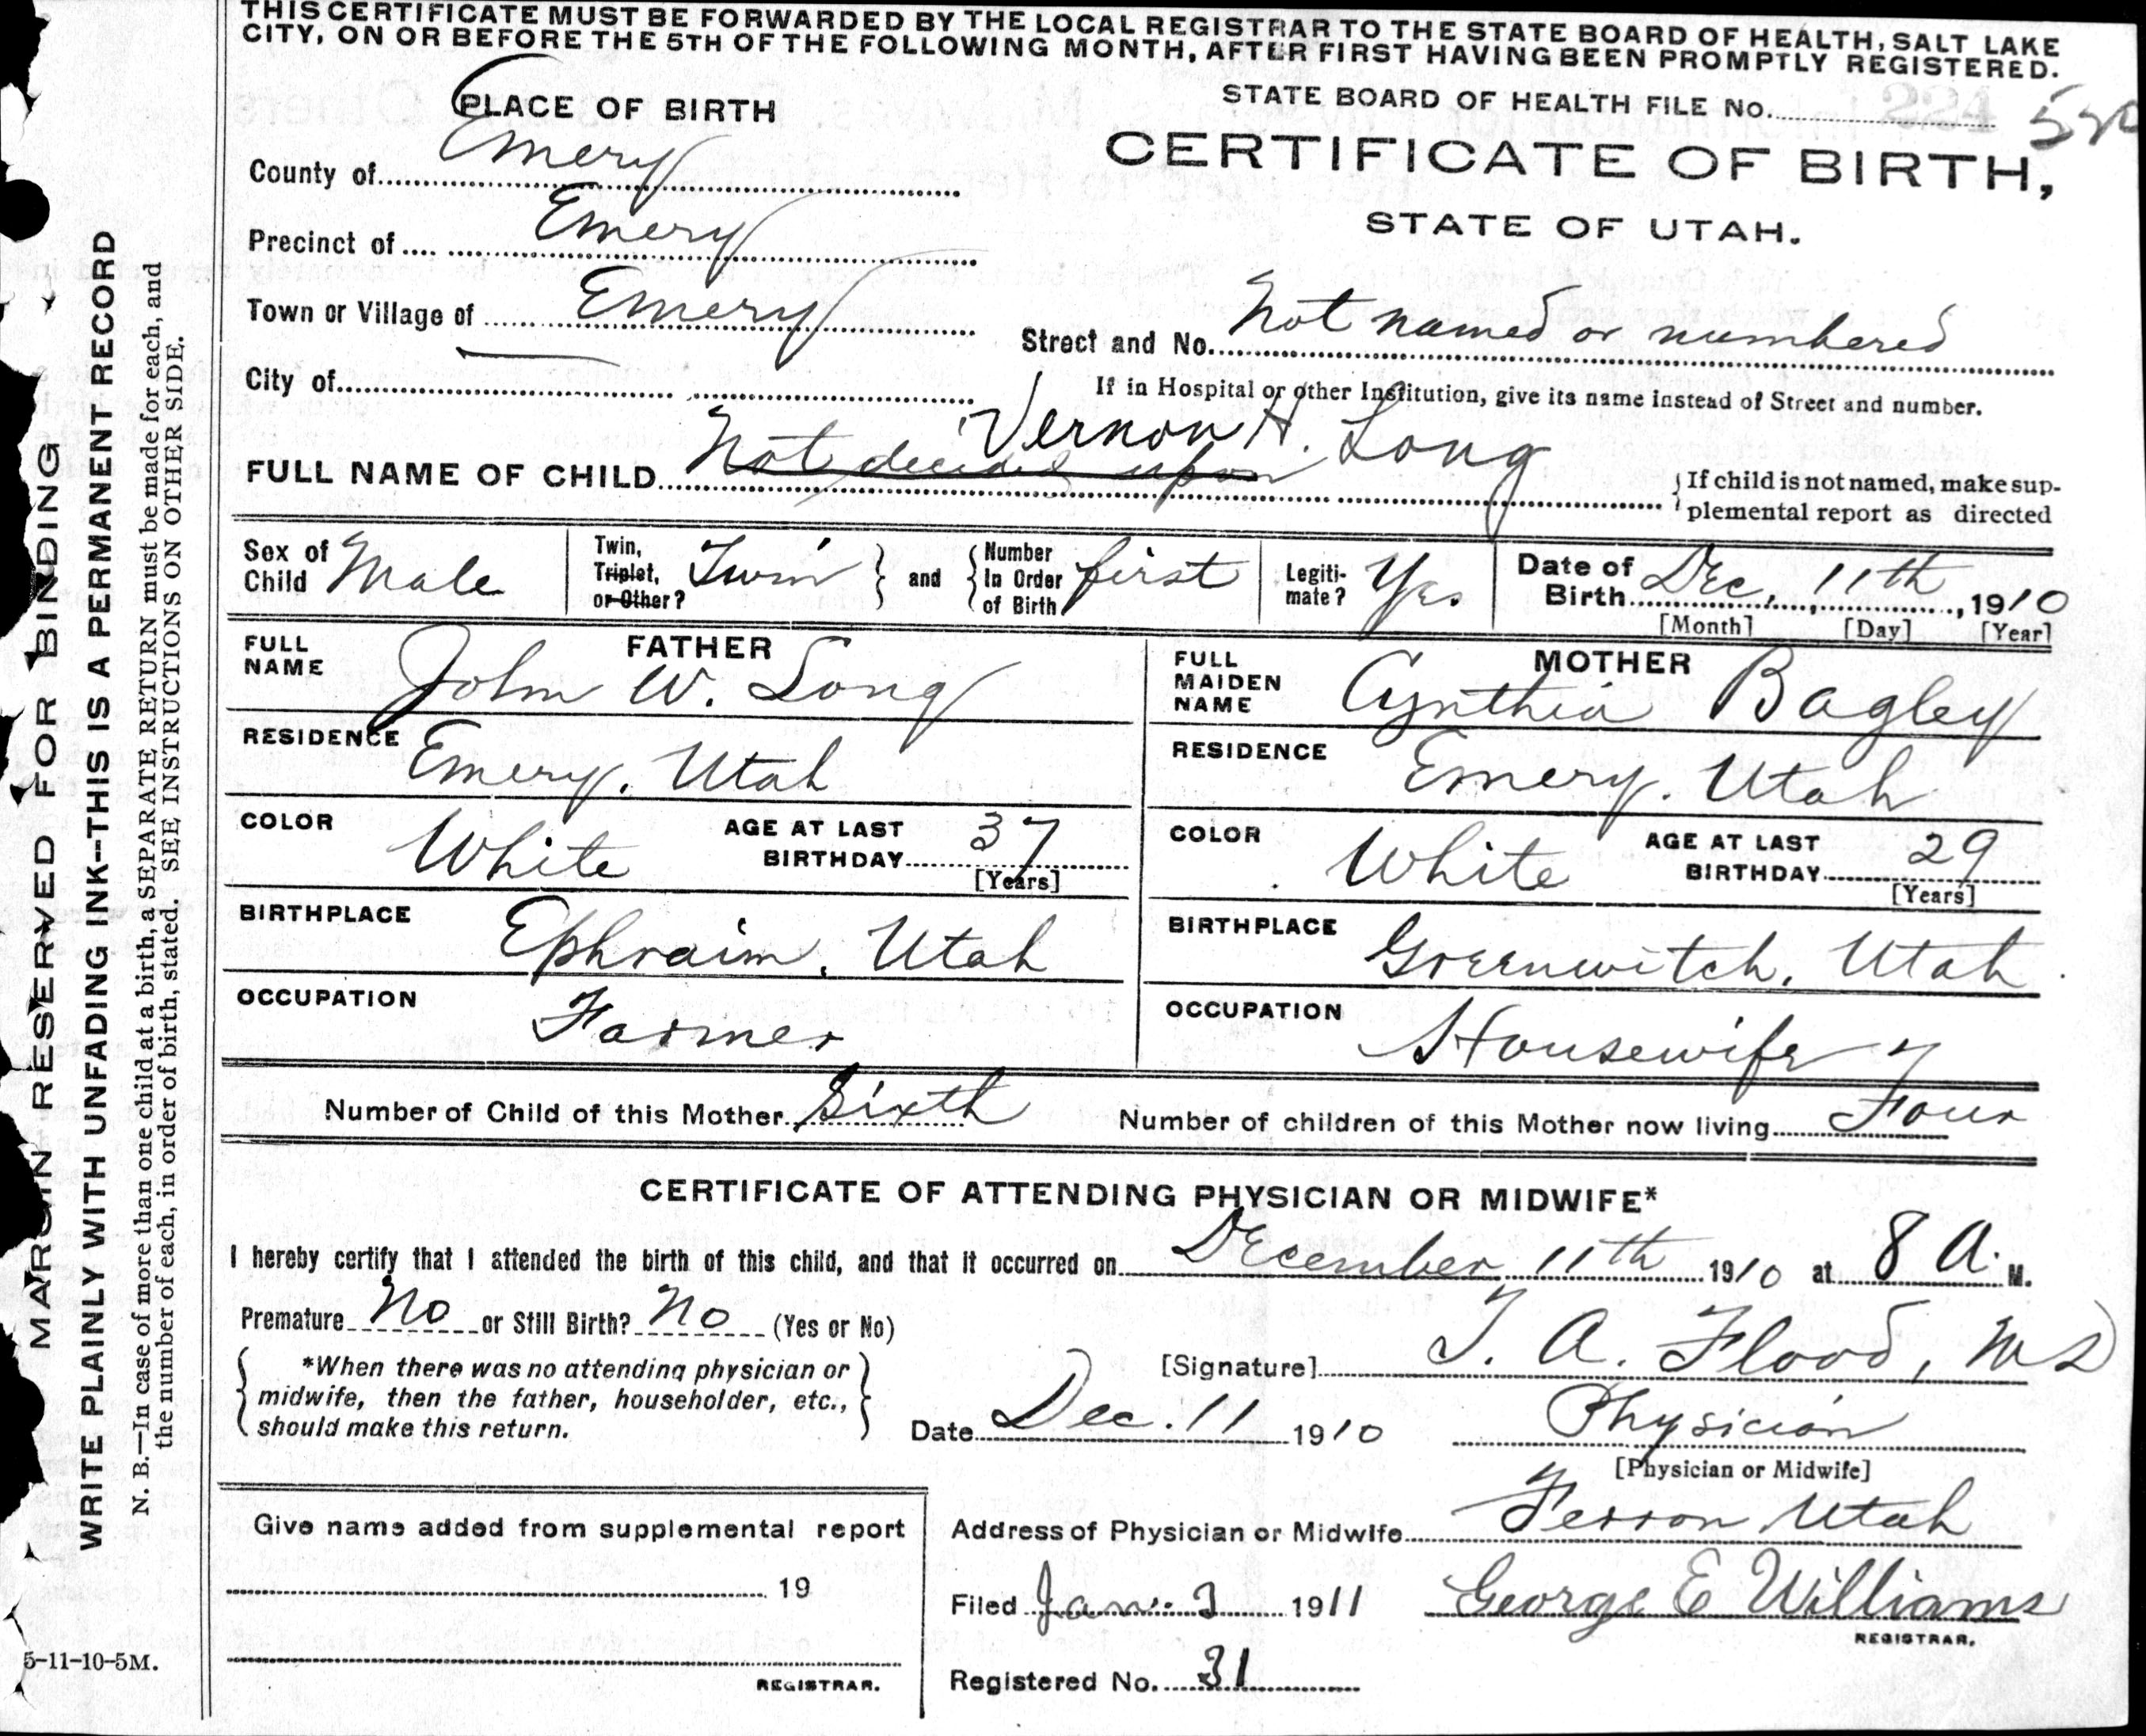 THIS CERTIFICATE MUST BE FORWARDED BY THE LOCAL REGISTRAR TO THE STATE BOARD OF HEALTH, SALT LAKE
CITY, ON OR BEFORE THE 5TH OF THE FOLLOWING MONTH, AFTER FIRST HAVING BEEN PROMPTLY REGISTERED.
PLACE OF BIRTH
STATE BOARD OF HEALTH FILE No.
CERTIFICATE OF BIRTH,
STATE OF UTAH.
County of Emery
Precinct of Emery
Town or Village of Emery
Street and No. Not named or numbered
City of
If in Hospital or other Institution, give its name instead of Street and number.
Vernon H. Long
FULL NAME OF CHILD Not decided upon
If child is not named, make sup-
plemental report as directed
Sex of Child Male
Twin, Triplet, or Other? Twin
and Number In Order of Birth first
Legiti-mate? Yes
Date of Birth Dec, 11th, 1910
[Month] [Day] [Year]
FATHER
FULL NAME John W. Long
RESIDENCE Emery, Utah
COLOR White
AGE AT LAST BIRTHDAY 37
[Years]
BIRTHPLACE Ephraim, Utah
OCCUPATION Farmer
MOTHER
FULL MAIDEN NAME Cynthia Bagley
RESIDENCE Emery, Utah
COLOR White
AGE AT LAST BIRTHDAY 29
[Years]
BIRTHPLACE Greenwitch, Utah
OCCUPATION Housewife
Number of Child of this Mother Sixth
Number of children of this Mother now living Four
CERTIFICATE OF ATTENDING PHYSICIAN OR MIDWIFE*
I hereby certify that I attended the birth of this child, and that it occurred on December 11th 1910 at 8 A. M.
Premature No or Still Birth? No (Yes or No)
*When there was no attending physician or
midwife, then the father, householder, etc.,
should make this return.
[Signature] T. A. Flood, MD
Date Dec. 11 1910
Physician
[Physician or Midwife]
Address of Physician or Midwife Ferron Utah
Give name added from supplemental report
19
REGISTRAR.
Filed Jan. 3 1911
George E Williams
REGISTRAR.
Registered No. 31
MARGIN RESERVED FOR BINDING
WRITE PLAINLY WITH UNFADING INK--THIS IS A PERMANENT RECORD
N. B.—In case of more than one child at a birth, a SEPARATE RETURN must be made for each, and
the number of each, in order of birth, stated. SEE INSTRUCTIONS ON OTHER SIDE.
5-11-10-5M.